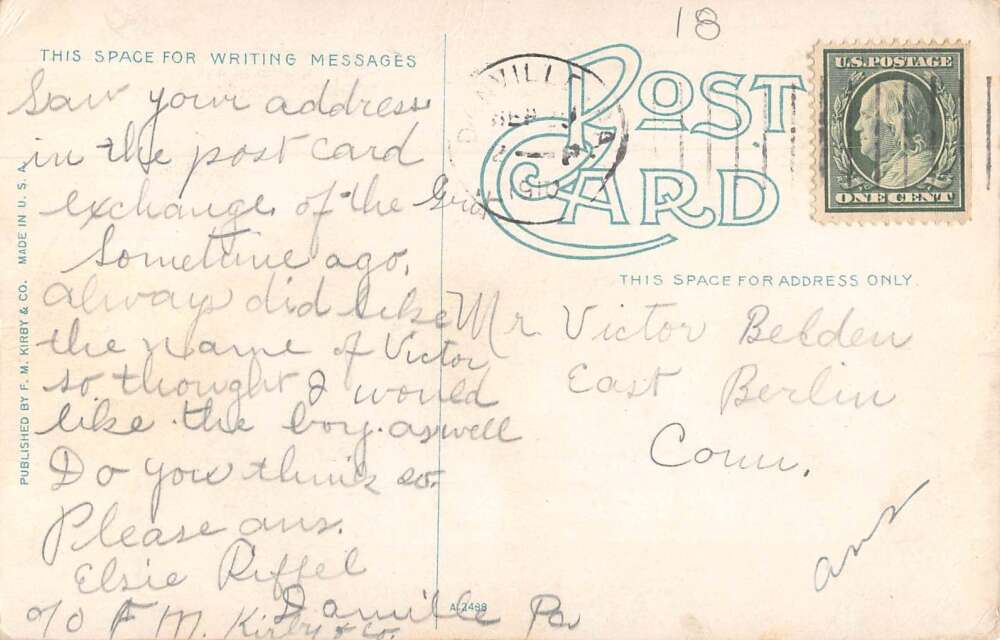 18
THIS SPACE FOR WRITING MESSAGES
POST CARD
U.S. POSTAGE
ONE CENT
DANVILLE PA
SEP
1910
THIS SPACE FOR ADDRESS ONLY.
Saw your address
in the post card
exchange of the Grit
Sometime ago.
Always did like
the name of Victor
so thought I would
like the boy as well
Do you think so.
Please ans.
Elsie Riffel
c/o F. M. Kirby & Co.
Danville Pa
Mr. Victor Belden
East Berlin
Conn.
ans
PUBLISHED BY F. M. KIRBY & CO. MADE IN U. S. A.